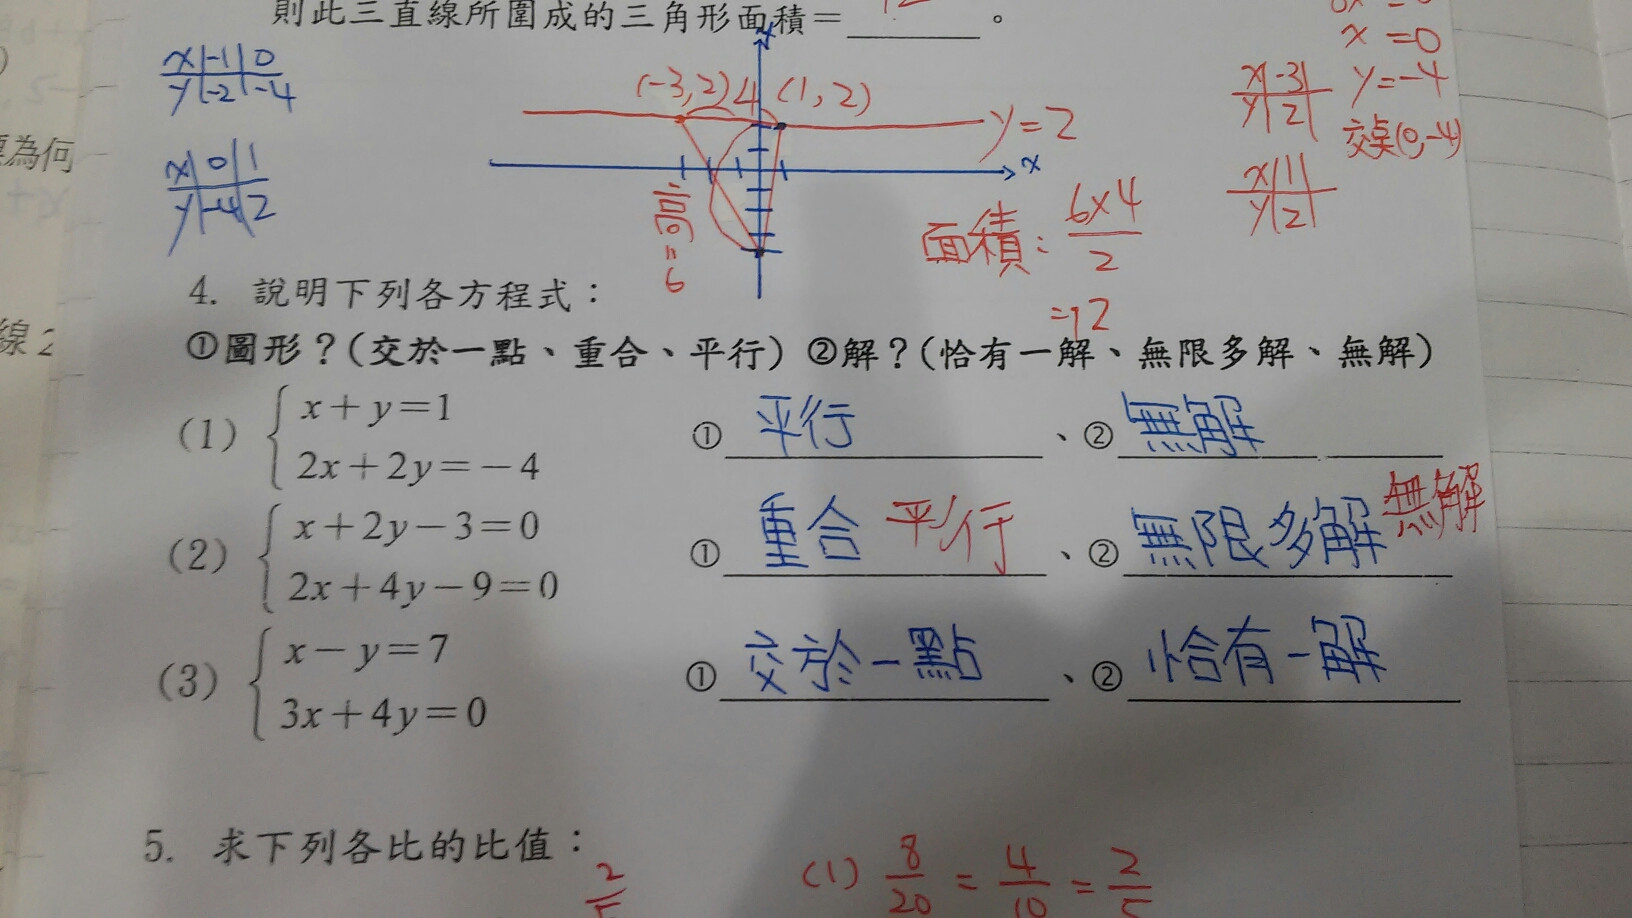 則此三直線所圍成的三角形面積= 12 。
x = 0
y = -4
交桌(0,-4)
x | -1 | 0
y | -2 | -4
x | 0 | 1
y | -4 | 2
(-3,2) 4 (1,2)
y=2
x
高=6
x | -3
y | 2
x | 1
y | 2
面積: 6×4/2
=12
為何
線2
4. 說明下列各方程式:
①圖形?(交於一點、重合、平行) ②解?(恰有一解、無限多解、無解)
(1) { x+y=1
2x+2y=-4
① 平行 、② 無解
(2) { x+2y-3=0
2x+4y-9=0
① 重合 平行 、② 無限多解 無解
(3) { x-y=7
3x+4y=0
① 交於一點 、② 恰有一解
5. 求下列各比的比值:
(1) 8/20 = 4/10 = 2/5
2/5